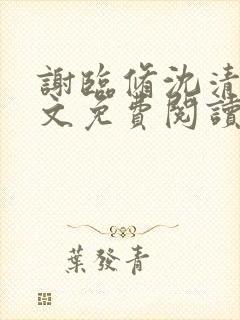 謝臨脩沈清
文免費閱讀
葉發青